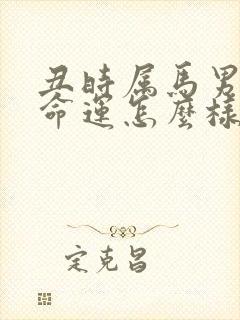 丑時属馬男
命運怎麼樣
定克昌